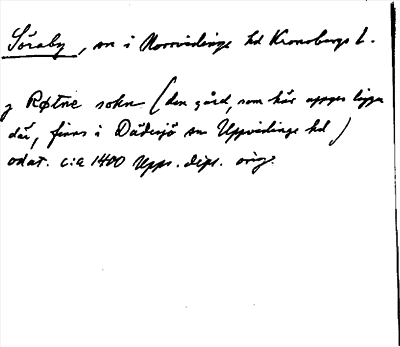 Söraby, sn i Norrvidinge hd Kronobergs l.
j Røtne sokn (den gård, som här uppges ligga
där, finns i Dädesjö sn Uppvidinge hd)
odat. c:a 1400 Upps. dipl. orig.